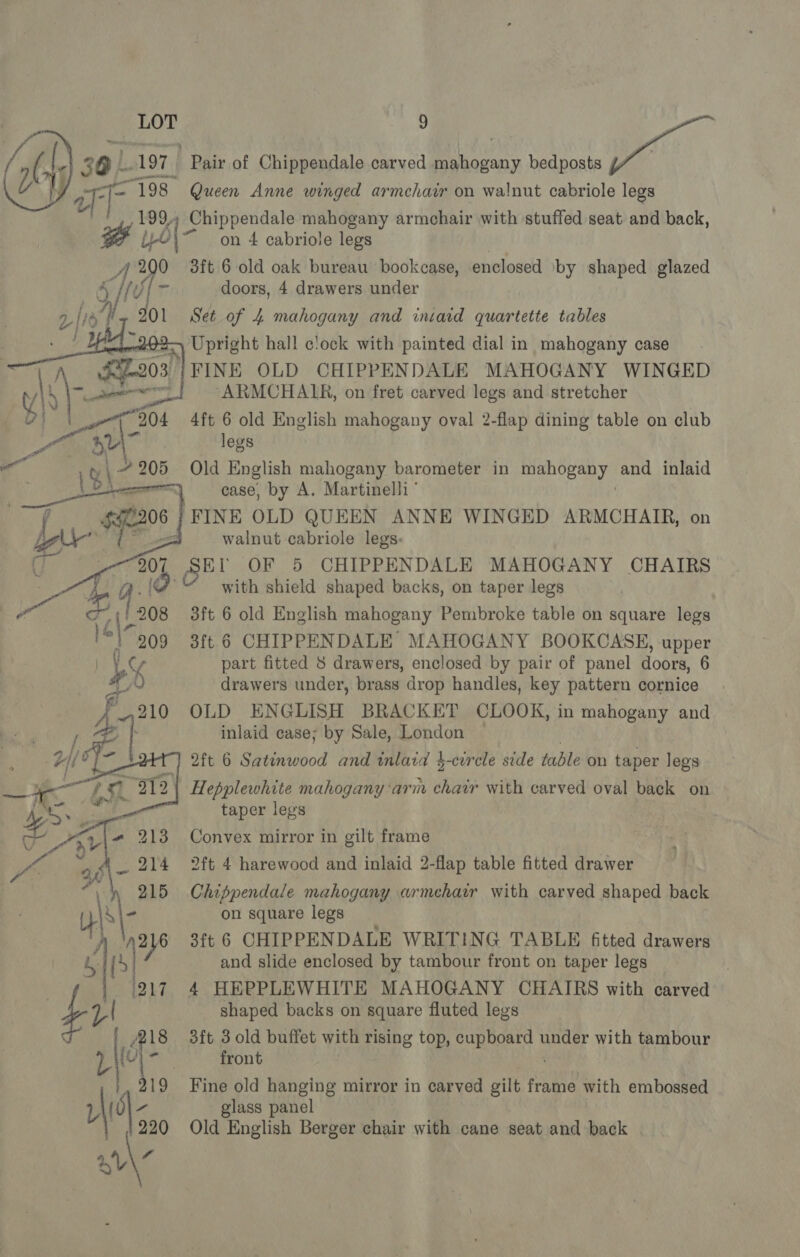 LOT 9
197 Pair of Chippendale carved mahogany bedposts
198 Queen Anne winged armchair on walnut cabriole legs
199 Chippendale mahogany armchair with stuffed seat and back,
on 4 cabriole legs
200 3ft 6 old oak bureau bookcase, enclosed by shaped glazed
doors, 4 drawers under
201 Set of 4 mahogany and inlaid quartette tables
202 Upright hall clock with painted dial in mahogany case
203 FINE OLD CHIPPENDALE MAHOGANY WINGED
ARMCHAIR, on fret carved legs and stretcher
204 4ft 6 old English mahogany oval 2-flap dining table on club
legs
205 Old English mahogany barometer in mahogany and inlaid
case, by A. Martinelli
206 FINE OLD QUEEN ANNE WINGED ARMCHAIR, on
walnut cabriole legs
207 SET OF 5 CHIPPENDALE MAHOGANY CHAIRS
with shield shaped backs, on taper legs
208 3ft 6 old English mahogany Pembroke table on square legs
209 3ft 6 CHIPPENDALE MAHOGANY BOOKCASE, upper
part fitted 8 drawers, enclosed by pair of panel doors, 6
drawers under, brass drop handles, key pattern cornice
210 OLD ENGLISH BRACKET CLOOK, in mahogany and
inlaid case; by Sale, London
211 2ft 6 Satinwood and inlaid ½-circle side table on taper legs
212 Hepplewhite mahogany arm chair with carved oval back on
taper legs
213 Convex mirror in gilt frame
214 2ft 4 harewood and inlaid 2-flap table fitted drawer
215 Chippendale mahogany armchair with carved shaped back
on square legs
216 3ft 6 CHIPPENDALE WRITING TABLE fitted drawers
and slide enclosed by tambour front on taper legs
217 4 HEPPLEWHITE MAHOGANY CHAIRS with carved
shaped backs on square fluted legs
218 3ft 3 old buffet with rising top, cupboard under with tambour
front
219 Fine old hanging mirror in carved gilt frame with embossed
glass panel
220 Old English Berger chair with cane seat and back